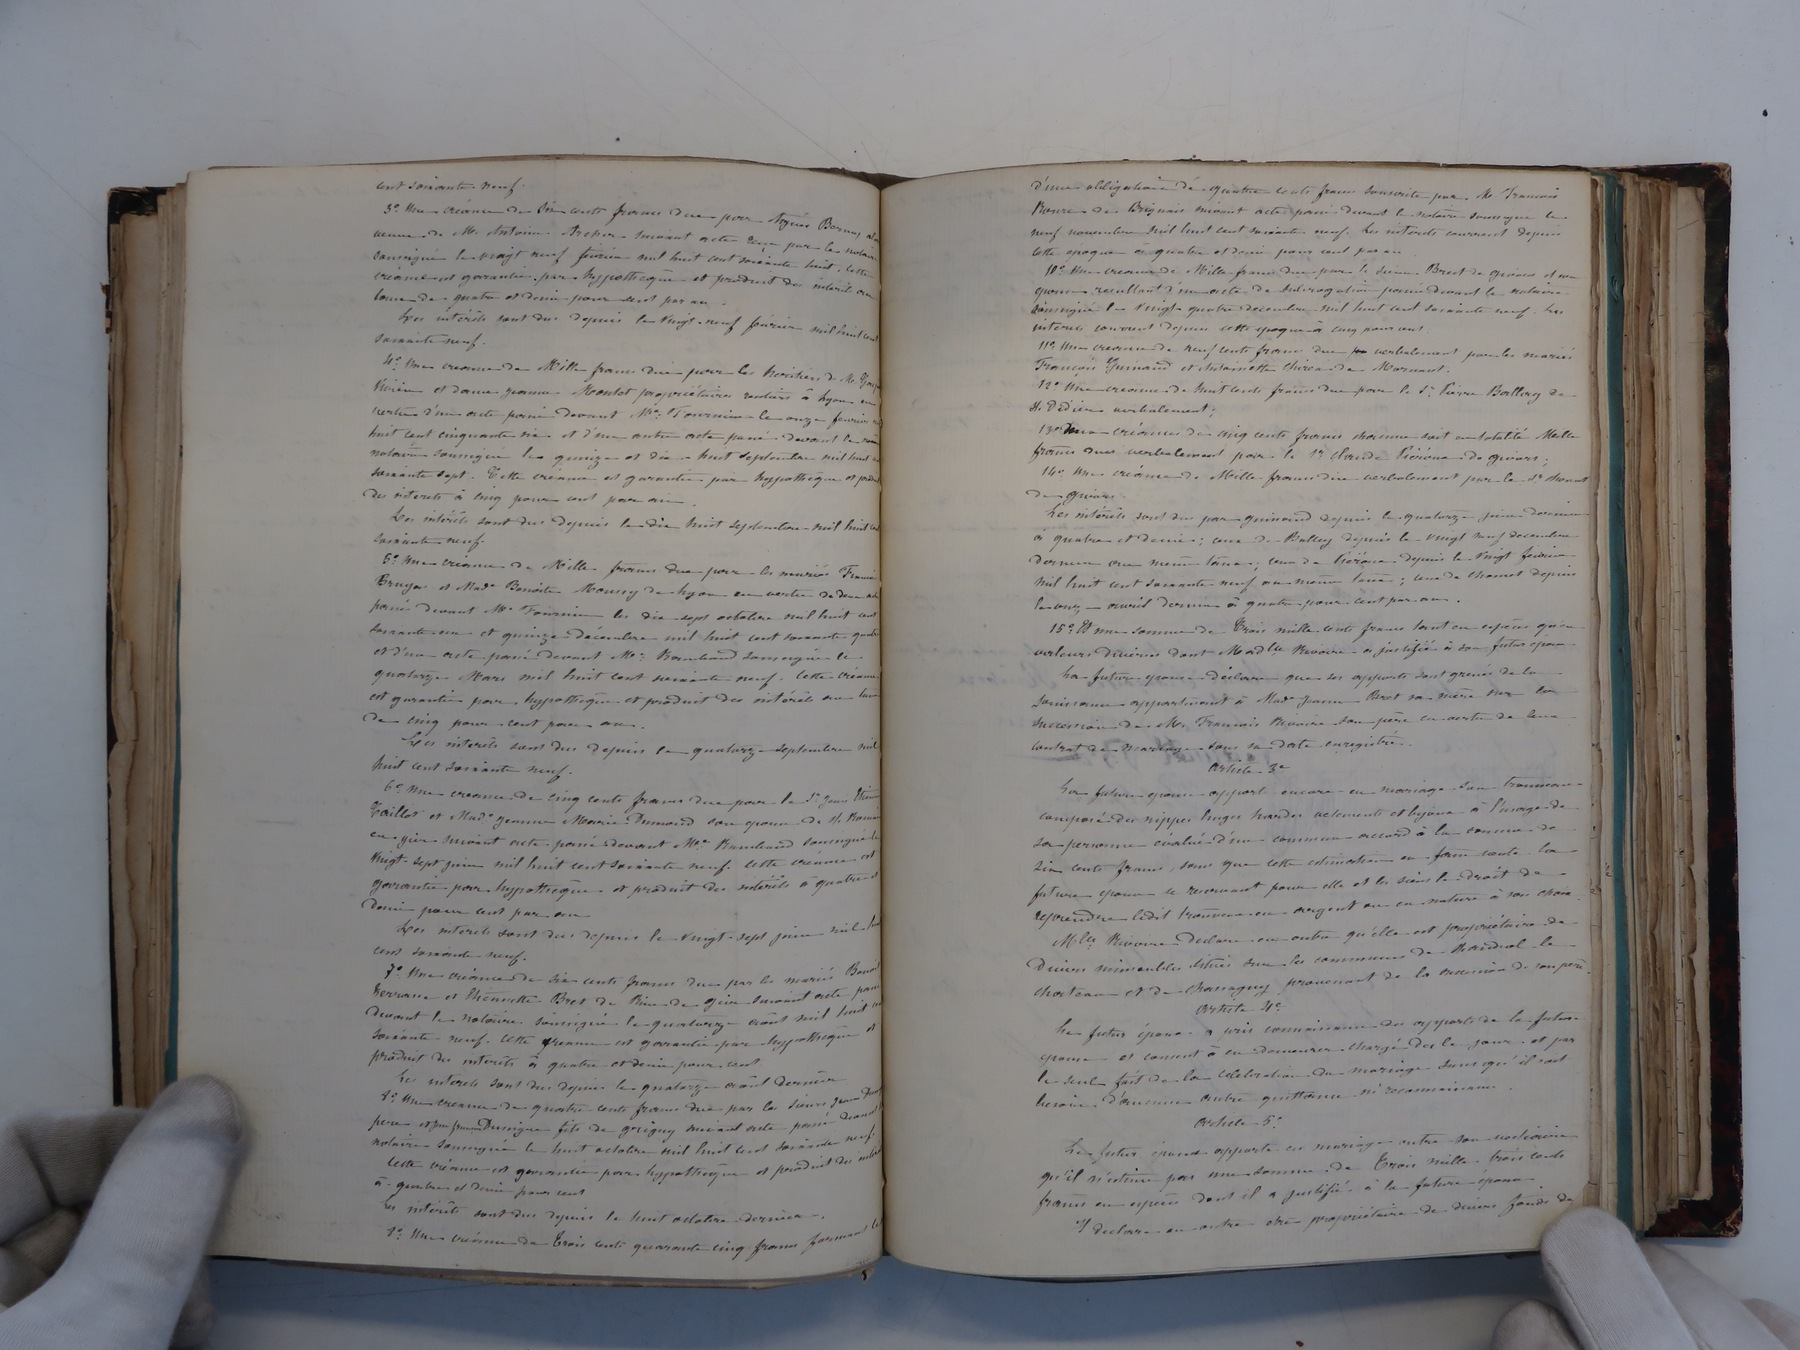 cent soixante neuf.
3º Une créance de Six cents francs due par
veuve de M. Antoine Archer suivant acte reçu par le notaire
soussigné le vingt neuf février mil huit cent soixante huit. Cette
créance est garantie par hypothèque et produit des intérêts au
taux de quatre et demi pour cent par an.
Les intérêts sont dus depuis le vingt-neuf février mil huit cent
soixante neuf.
4º Une créance de Mille francs due par les héritiers de M.
et dame Jeanne propriétaires rentiers à Lyon en
vertu d'un acte passé devant Me Fournier le onze février
huit cent cinquante six et d'un autre acte passé devant le
notaire soussigné le quinze et dix-huit septembre mil huit
soixante sept. Cette créance est garantie par hypothèque et produit
des intérêts à cinq pour cent par an.
Les intérêts sont dus depuis le dix huit septembre mil huit cent
soixante neuf.
5º Une créance de Mille francs due par les mariés
et Made Benoite Moussy de Lyon en vertu de deux
passé devant Me Fournier les dix sept octobre mil huit cent
soixante un et quinze décembre mil huit cent soixante quatre
et d'un acte passé devant Me Rambaud soussigné le
quatorze Mars mil huit cent soixante neuf. Cette créance
est garantie par hypothèque et produit des intérêts au taux
de cinq pour cent par an.
Les intérêts sont dus depuis le quatorze septembre mil
huit cent soixante neuf.
6º Une créance de cinq cents francs due par le Sr Jean
et Made Jeanne Marie Dumond son épouse de St Romain
en gier suivant acte passé devant Me Rambaud soussigné le
vingt sept juin mil huit cent soixante neuf. Cette créance est
garantie par hypothèque et produit des intérêts à quatre et
demi pour cent par an
Les intérêts sont dus depuis le vingt-sept juin mil huit
cent soixante neuf.
7º Une créance de six cents francs due par les mariés Benoit
et Etiennette Bret de Rive de Gier suivant acte passé
devant le notaire soussigné le quatorze août mil huit cent
soixante neuf. Cette créance est garantie par hypothèque et
produit des intérêts à quatre et demi pour cent.
Les intérêts sont dus depuis le quatorze août dernier
8º Une créance de quatre cents francs due par les sieurs Jean
père et fils de Grigny suivant acte passé devant le
notaire soussigné le huit octobre mil huit cent soixante neuf.
Cette créance est garantie par hypothèque et produit des intérêts
à quatre et demi pour cent
Les intérêts sont dus depuis le huit octobre dernier.
9º Une créance de Trois cents quarante cinq francs formant le
d'une obligation de quatre cents francs souscrite par M. François
de Brignais suivant acte passé devant le notaire soussigné le
neuf novembre mil huit cent soixante neuf. Les intérêts courrent depuis
cette époque à quatre et demi pour cent par an.
10º Une créance de Mille francs due par le sieur Bret de givors et son
épouse résultant d'un acte de subrogation passé devant le notaire
soussigné le vingt quatre décembre mil huit cent soixante neuf. Les
intérêts courrent depuis cette époque à cinq pour cent.
11º Une créance de neuf cents francs due verbalement par les mariés
François Guinand et Antoinette de Mornant.
12º Une créance de huit cents francs due par le Sr Pierre de
St Didier verbalement;
13º Deux créances de cinq cents francs chacune soit en totalité Mille
francs dues verbalement par le Sr Claude de givors;
14º Une créance de Mille francs due verbalement par le Sr
de givors.
Les intérêts sont dus par guinand depuis le quatorze juin dernier
à quatre et demi; ceux de depuis le vingt neuf décembre
dernier au même taux; ceux de depuis le vingt février
mil huit cent soixante neuf au même taux; ceux de depuis
le onze avril dernier à quatre pour cent par an.
15º Et une somme de Trois mille cents francs tant en espèces qu'en
valeurs diverses dont Madlle Rivoire a justifié à son futur époux
La future épouse déclare que ses apports sont grevés de la
jouissance appartenant à Made Jeanne Bret sa mère sur la
succession de M. François Rivoire son père en vertu de leur
contrat de mariage sous sa date enregistré.
Article 3e
La future épouse apporte encore en mariage son trousseau
composé des nippes linges hardes vêtements et bijoux à l'usage de
sa personne évalué d'un commun accord à la somme de
Six cents francs, sans que cette estimation en fasse vente la
future épouse se reservant pour elle et les siens le droit de
reprendre ledit trousseau en argent ou en nature à son choix.
Mlle Rivoire déclare en outre qu'elle est propriétaire de
divers immeubles situés sur les communes de
et de Chassagny provenant de la succession de son père.
Article 4e
Le futur époux a pris connaissance des apports de la future
épouse et consent à en demeurer chargé dès le jour et par
le seul fait de la célébration du mariage sans qu'il soit
besoin d'aucune autre quittance ni reconnaissance.
Article 5e
Le futur époux apporte en mariage outre son vestiaire
qu'il n'estime pas une somme de Trois mille trois cents
francs en espèces dont il a justifié à la future épouse
Il déclare en outre être propriétaire de divers fonds de